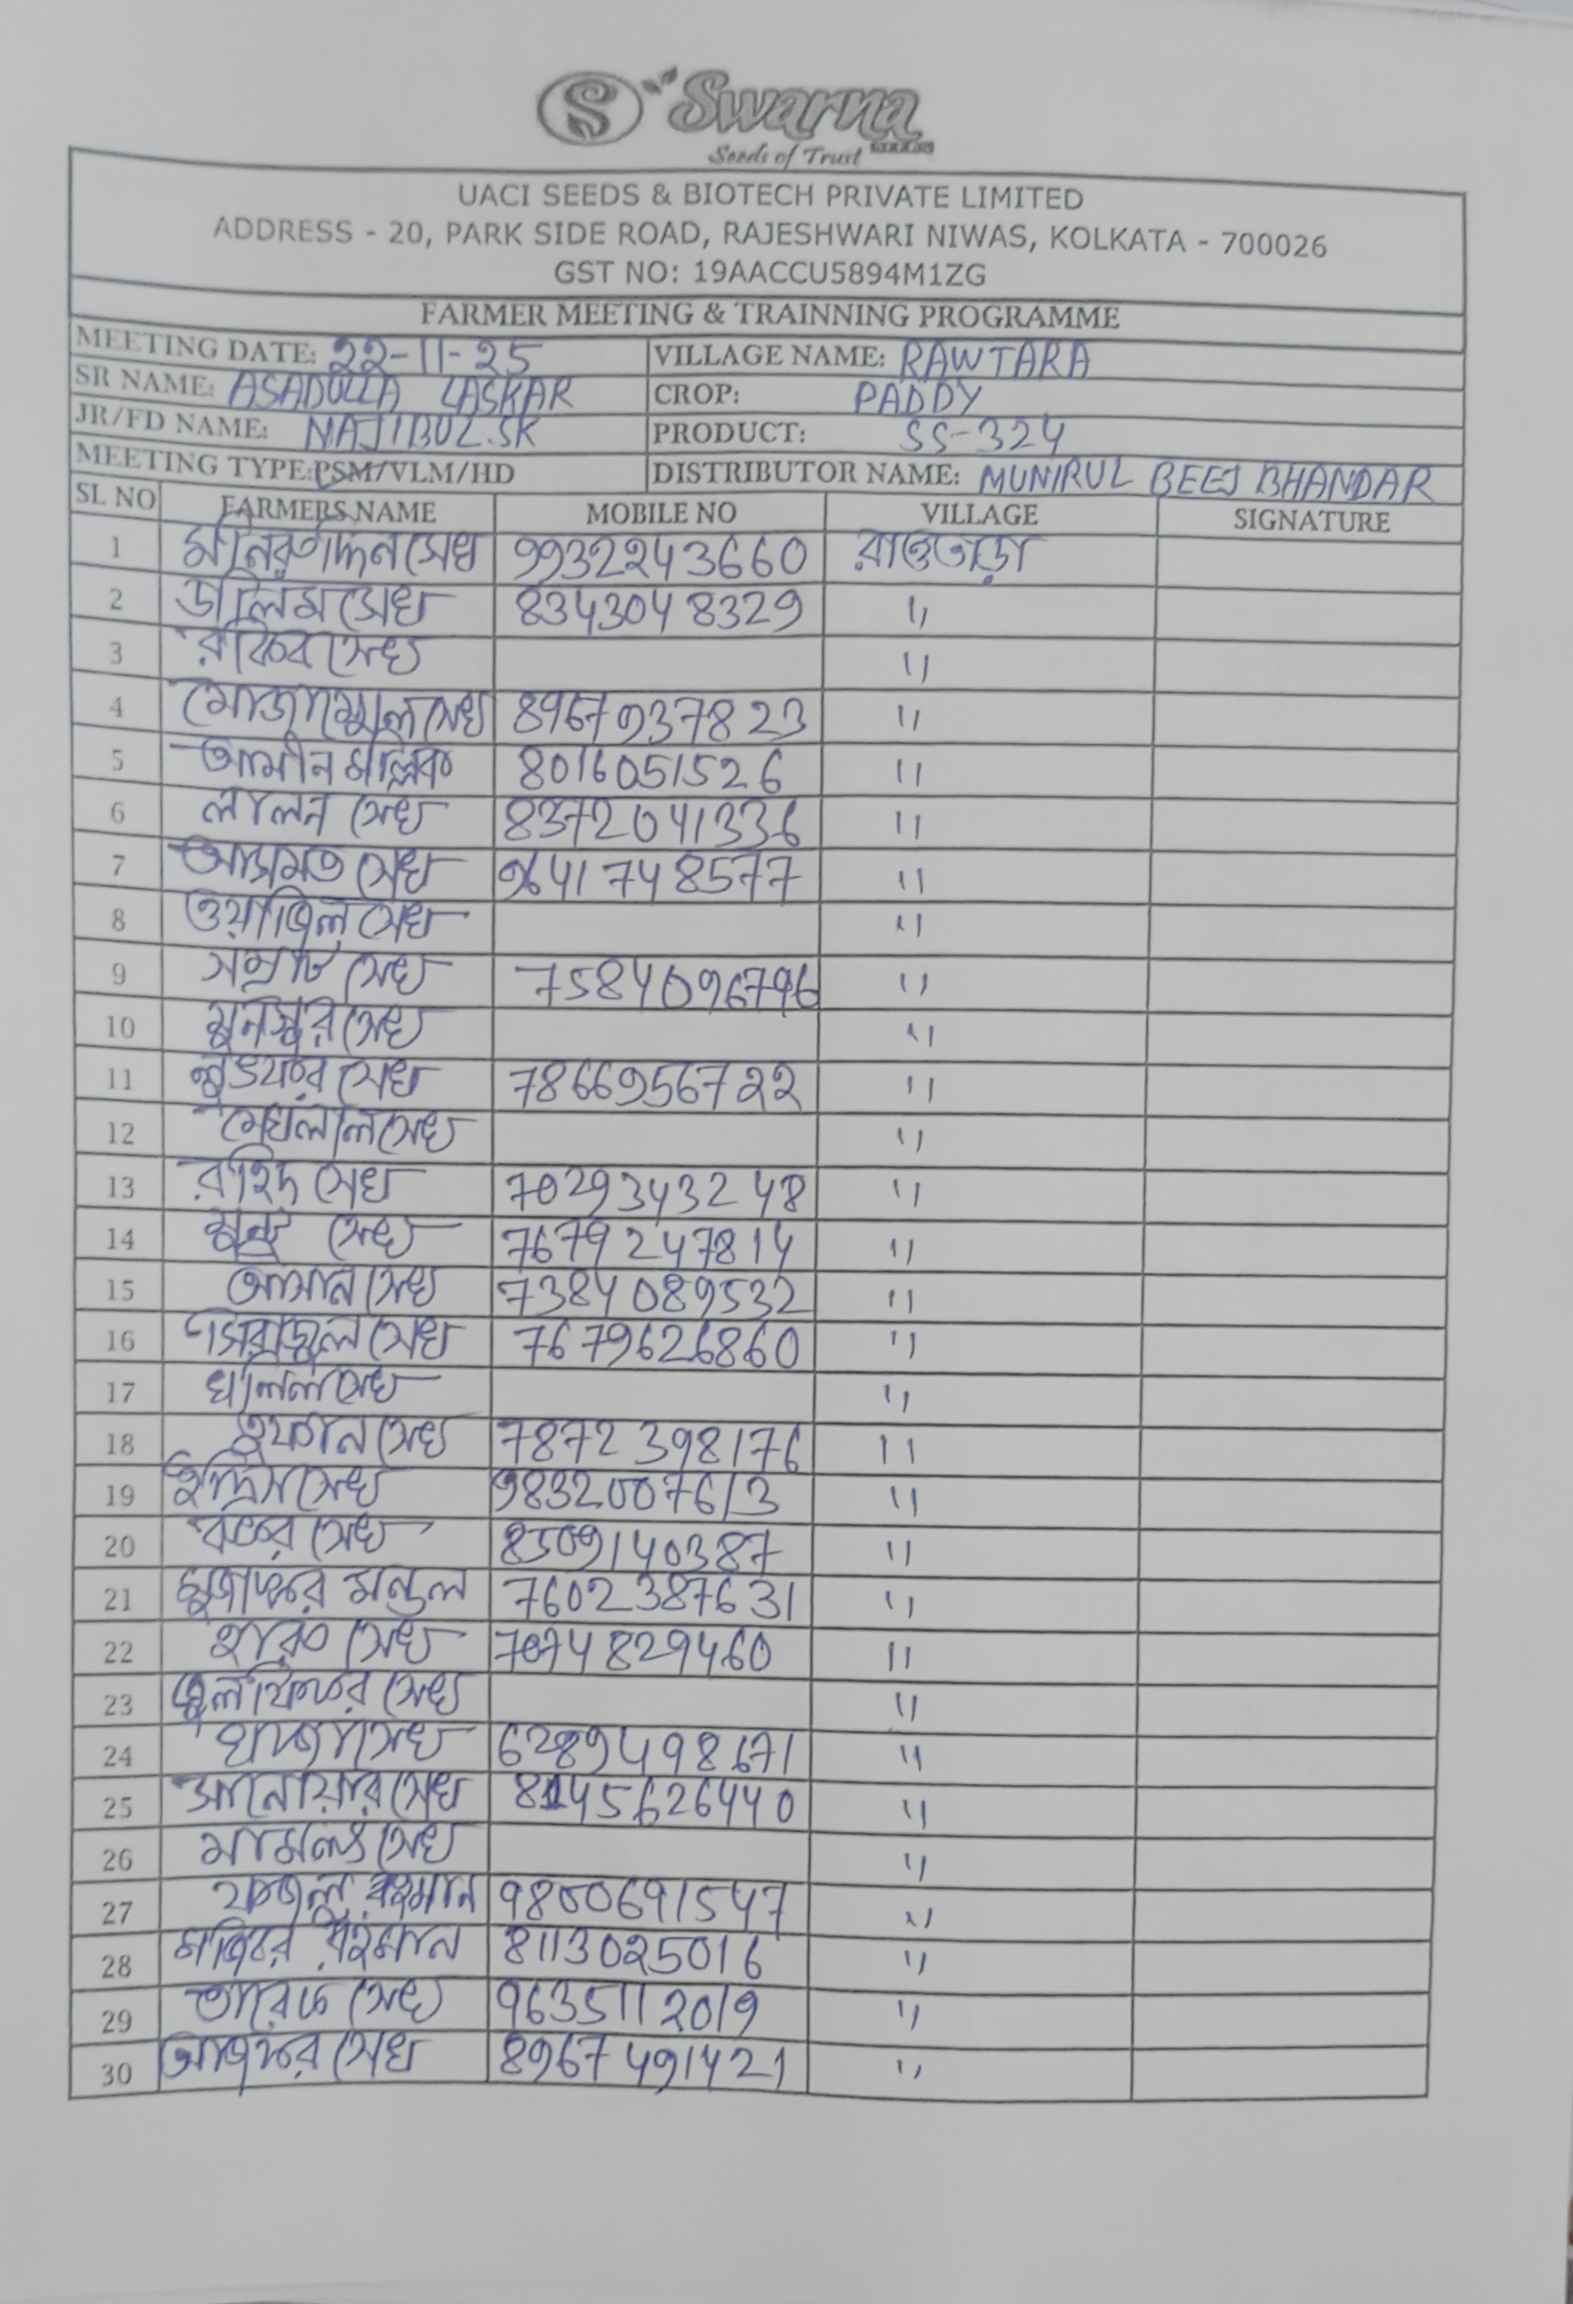 S Swarna
Seeds of Trust
UACI SEEDS & BIOTECH PRIVATE LIMITED
ADDRESS - 20, PARK SIDE ROAD, RAJESHWARI NIWAS, KOLKATA - 700026
GST NO: 19AACCU5894M1ZG
FARMER MEETING & TRAINNING PROGRAMME
MEETING DATE: 22-11-25 VILLAGE NAME: RAWTARA
SR NAME: ASADULLA LASKAR CROP: PADDY
JR/FD NAME: NAJIBUL.SK PRODUCT: SS-324
MEETING TYPE: PSM/VLM/HD DISTRIBUTOR NAME: MUNIRUL BEEJ BHANDAR
SL NO FARMERS NAME MOBILE NO VILLAGE SIGNATURE
1 সেখ 9932243660 রাওতাড়া
2 ডালিম সেখ 8343048329 "
3 রকিব সেখ "
4 মোজাম্মেল সেখ 8967937823 "
5 আমীন মল্লিক 8016051526 "
6 লালন সেখ 8372041336 "
7 আসমত সেখ 9641748577 "
8 ওয়াজিল সেখ "
9 সম্রাট সেখ 7584096796 "
10 সেখ "
11 সেখ 7866956722 "
12 মেঘলাল সেখ "
13 রাহিদ সেখ 7029343248 "
14 সেখ 7679247814 "
15 আসান সেখ 7384089532 "
16 সিরাজুল সেখ 7679626860 "
17 খলিল সেখ "
18 তুফান সেখ 7872398176 "
19 ইদ্রিস সেখ 9832007613 "
20 সেখ 8509140387 "
21 মুজাফ্ফর মন্ডল 7602387631 "
22 সেখ 7074829460 "
23 জুলফিকর সেখ "
24 খাজা সেখ 6289498671 "
25 আনোয়ার সেখ 8145626440 "
26 সেখ "
27 ফজলু রহমান 9800691547 "
28 মজিবর রহমান 8113025016 "
29 তারেক সেখ 9635112019 "
30 সেখ 8967491421 "